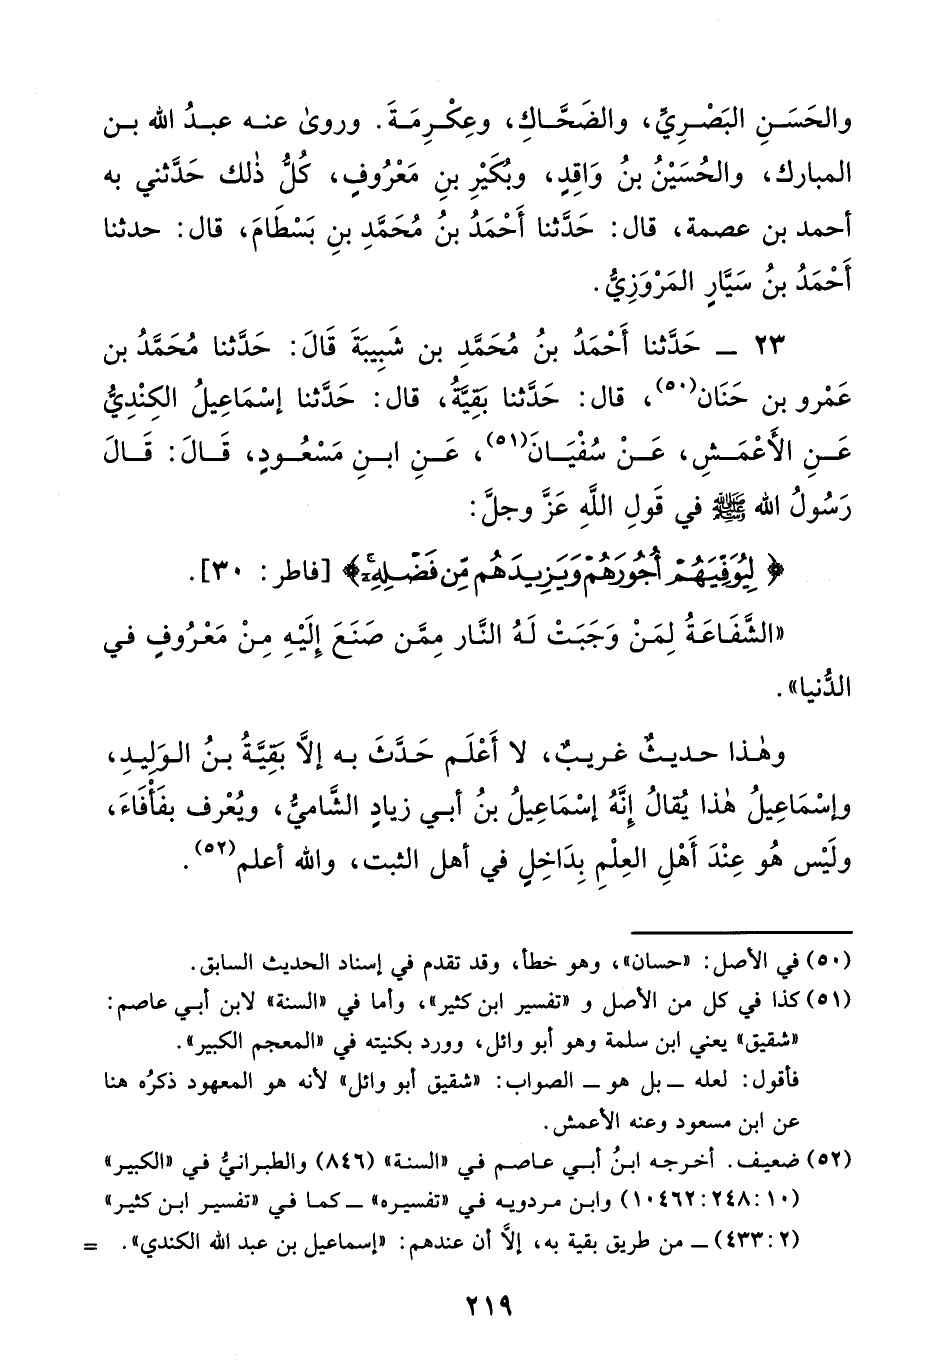 والحَسَنِ البَصْرِيِّ، والضَحَّاكِ، وعِكْرِمَةَ. وروىٰ عنه عبدُ الله بن
المبارك، والحُسَيْنُ بنُ وَاقِدٍ، وبُكَيْرِ بنِ مَعْرُوفٍ، كُلُّ ذٰلك حَدَّثني به
أحمد بن عصمة، قال: حَدَّثنا أَحْمَدُ بنُ مُحَمَّدِ بنِ بَسْطَامَ، قال: حدثنا
أَحْمَدُ بنُ سَيَّارٍ المَرْوَزِيُّ.
٢٣ ــ حَدَّثنا أَحْمَدُ بنُ مُحَمَّدِ بن شَبِيبَةَ قَالَ: حَدَّثنا مُحَمَّدُ بن
عَمْرو بن حَنَان(٥٠)، قال: حَدَّثنا بَقِيَّةُ، قال: حَدَّثنا إسْمَاعِيلُ الكِنْدِيُّ
عَنِ الأَعْمَشِ، عَنْ سُفْيَانَ(٥١)، عَنِ ابنِ مَسْعُودٍ، قَالَ: قَالَ
رَسُولُ الله ﷺ في قَولِ اللَّهِ عَزَّ وجلَّ:
﴿لِيُوَفِّيَهُمْ أُجُورَهُمْ وَيَزِيدَهُم مِّن فَضْلِهِۦٓ﴾ [فاطر: ٣٠].
«الشَّفَاعَةُ لِمَنْ وَجَبَتْ لَهُ النَّار مِمَّن صَنَعَ إِلَيْهِ مِنْ مَعْرُوفٍ في
الدُّنيا».
وهٰذا حديثٌ غريبٌ، لا أَعْلَم حَدَّثَ به إلاَّ بَقِيَّةُ بنُ الوَلِيدِ،
وإسْمَاعِيلُ هٰذا يُقالُ إنَّهُ إسْمَاعِيلُ بنُ أبي زيادٍ الشَّاميُّ، ويُعْرف بفَأْفَاءَ،
ولَيْس هُو عِنْدَ أَهْلِ العِلْمِ بِدَاخِلٍ في أهل الثبت، والله أعلم(٥٢).
(٥٠) في الأصل: «حسان»، وهو خطأ، وقد تقدم في إسناد الحديث السابق.
(٥١) كذا في كل من الأصل و «تفسير ابن كثير»، وأما في «السنة» لابن أبي عاصم:
«شقيق» يعني ابن سلمة وهو أبو وائل، وورد بكنيته في «المعجم الكبير».
فأقول: لعله ــ بل هو ــ الصواب: «شقيق أبو وائل» لأنه هو المعهود ذكرُه هنا
عن ابن مسعود وعنه الأعمش.
(٥٢) ضعيف. أخرجه ابنُ أبي عاصم في «السنة» (٨٤٦) والطبرانيُّ في «الكبير»
(١٠:٢٤٨:١٠٤٦٢) وابن مردويه في «تفسيره» ــ كما في «تفسير ابن كثير»
(٢:٤٣٣) ــ من طريق بقية به، إلاَّ أن عندهم: «إسماعيل بن عبد الله الكندي». =
٢١٩